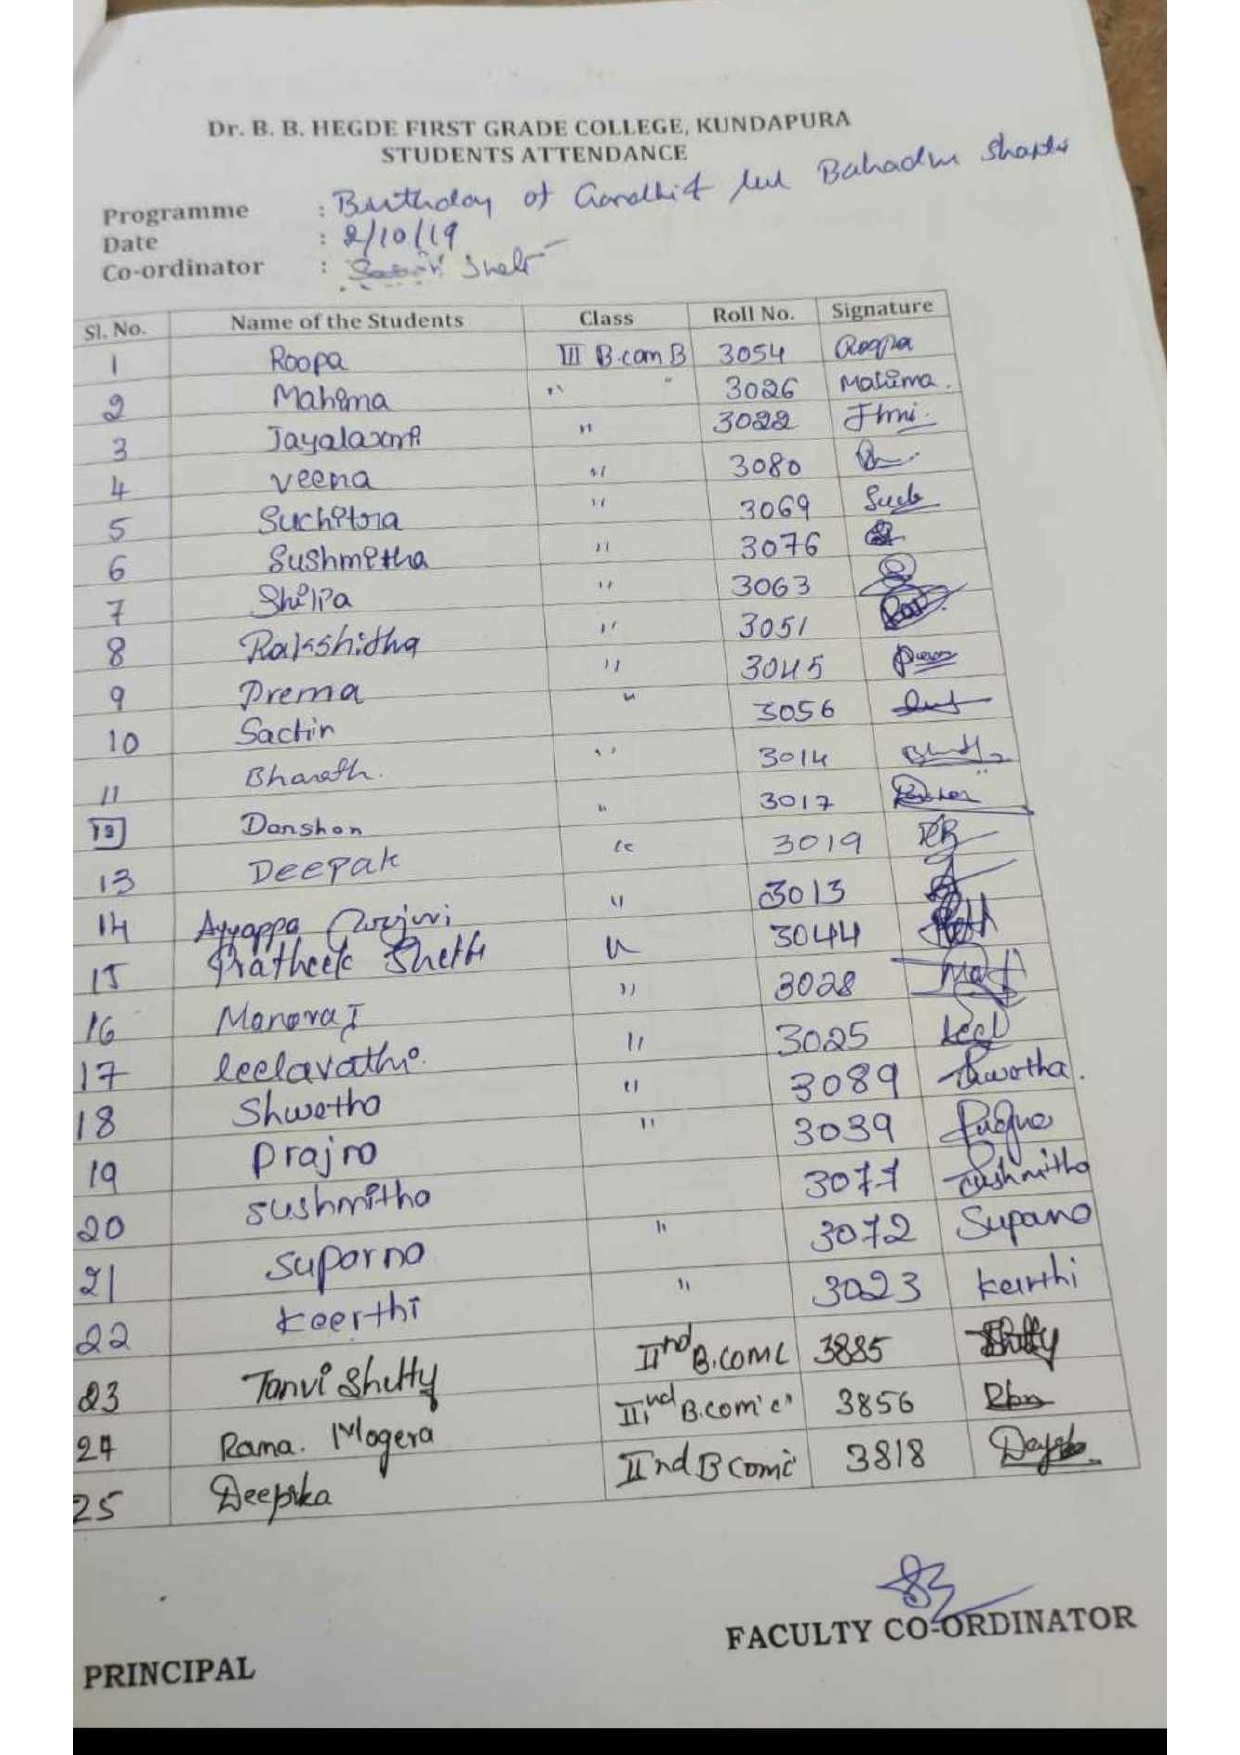 Dr. B. B. HEGDE FIRST GRADE COLLEGE, KUNDAPURA
STUDENTS ATTENDANCE
Programme : Birthday of Gandhi & Bahadur Shastri
Date : 2/10/19
Co-ordinator :
Sl. No. Name of the Students Class Roll No. Signature
1 Roopa III B.com B 3054 Roopa
2 Mahima " " 3026 Mahima.
3 Jayalaxmi " 3022
4 veena " 3080
5 Suchitra " 3069
6 Sushmitha " 3076
7 Shilpa " 3063
8 Rakshitha " 3051
9 Prema " 3045
10 Sachin " 3056
11 Bharath. " 3014
12 Darshan " 3017
13 Deepak " 3019
14 Ayyappa " 3013
15 Pratheek Shetti " 3044
16 Manoraj " 3028
17 leelavathi. " 3025 Leel
18 Shwetha " 3089 Shwetha.
19 Prajna " 3039
20 sushmitha 3077 Sushmitha
21 suparna " 3072 Supana
22 keerthi " 3023 keerthi
23 Tanvi Shetty IInd B.com C 3885
24 Rama. Mogera IInd B.com 'c' 3856
25 Deepika IInd B com c 3818
PRINCIPAL FACULTY CO-ORDINATOR